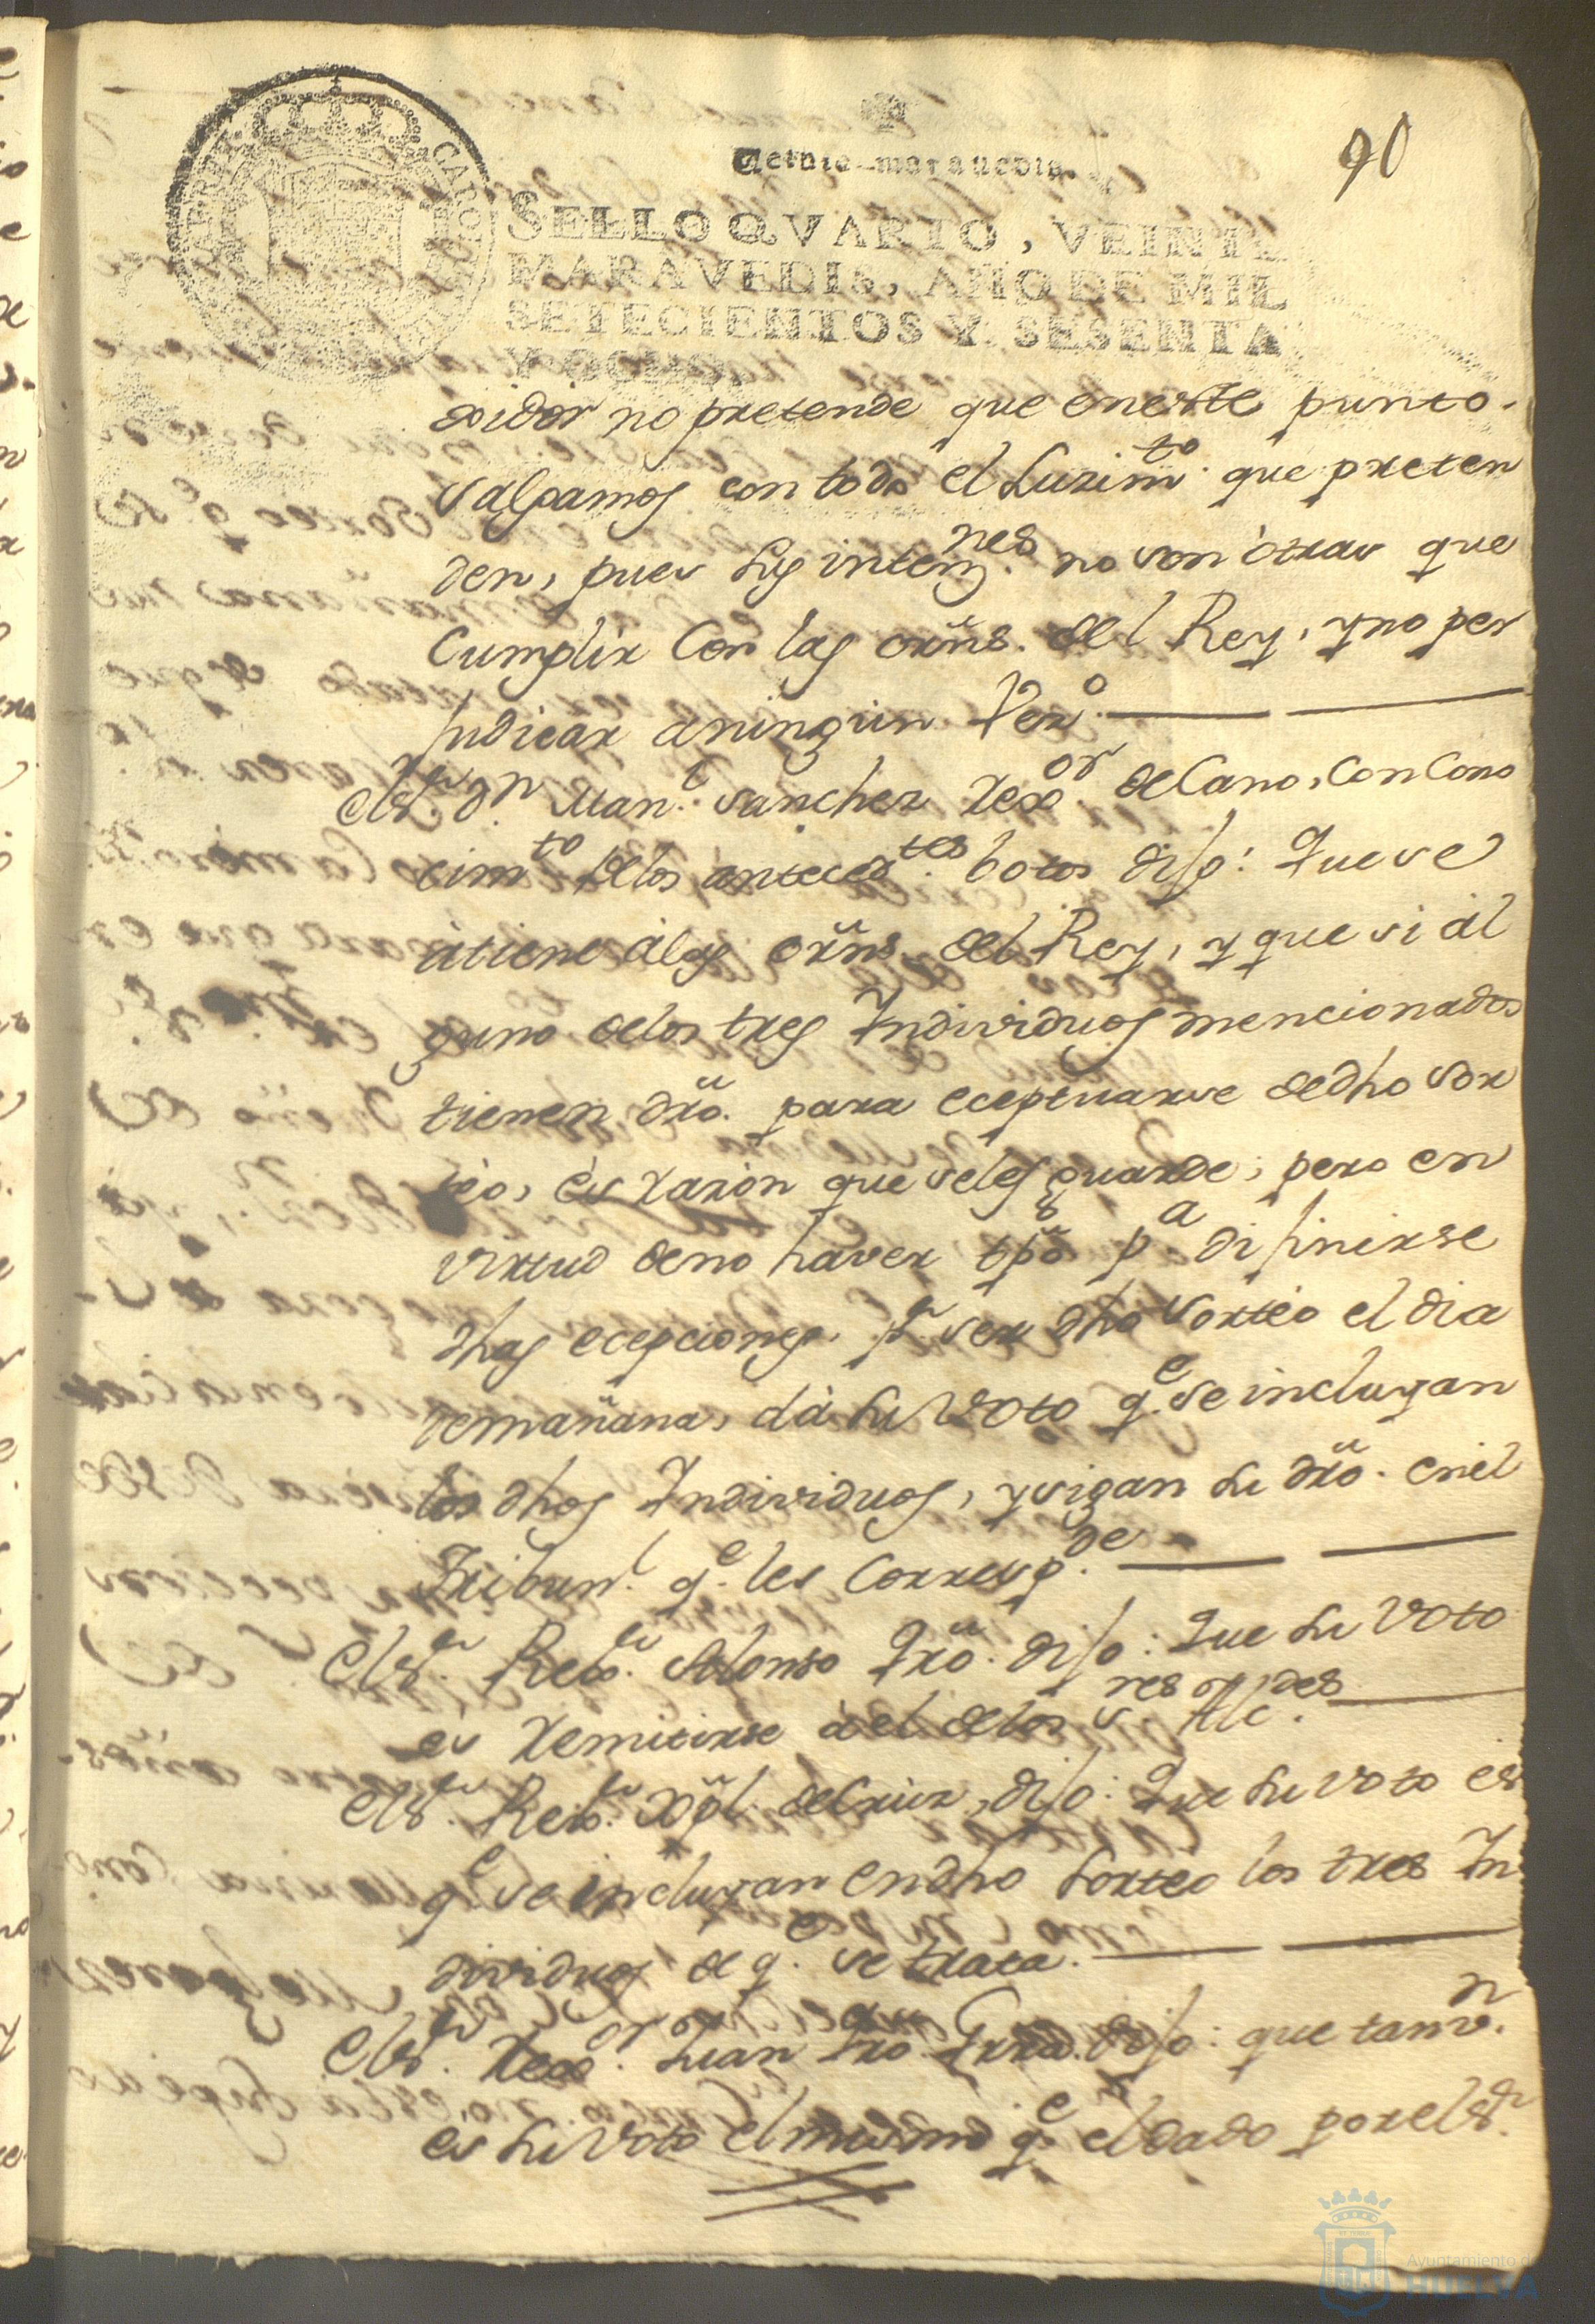 90
Veinte maravedis.
SELLO QVARTO, VEINTE
MARAVEDIS, AÑO DE MIL
SETECIENTOS Y SESENTA
Y OCHO.
CAROLUS
xidor no pretende que eneste punto.
salgamos con todo el Luzimto. que preten
den, pues sus intenznes. no son otras que
Cumplir Con las ordns. del Rey, y no per
Judicar aningun Vezo.
El Sr. Dn. Manl. Sanchez Rexor. deCano, Con Cono
cimto delos antecedtes. botos dijo: Que se
atiene àlas ordns. del Rey, y que si àl
guno delos tres Individuos mencionados
tienen dro. para eceptuarse dedho Sor
téo, és razòn que seles guarde; pero en
virtud deno haver tpo. pa difinirse
dhas ecepciones. pr. ser dho Sortéo el dia
demañana, dà su Voto qe. se incluyan
los dhos Individuos, y sigan su dro. enèl
Tribunl. qe. les Correspde.
El Sr. Rexr. Alonso Qro. dijo: Que su Voto
és remitirse àel delos sres. Alcdes.
El Sr. Rexr. Xpl. deCruz, dijo: Que su voto és
qe. se incluyan endho Sorteo los tres In
dividuos de qe. se trata.
El Sr. Rexor. Juan dijo: que tamvn.
és su Voto el mismo qe. el dado por el Sr.
Ayuntamiento de
HUELVA